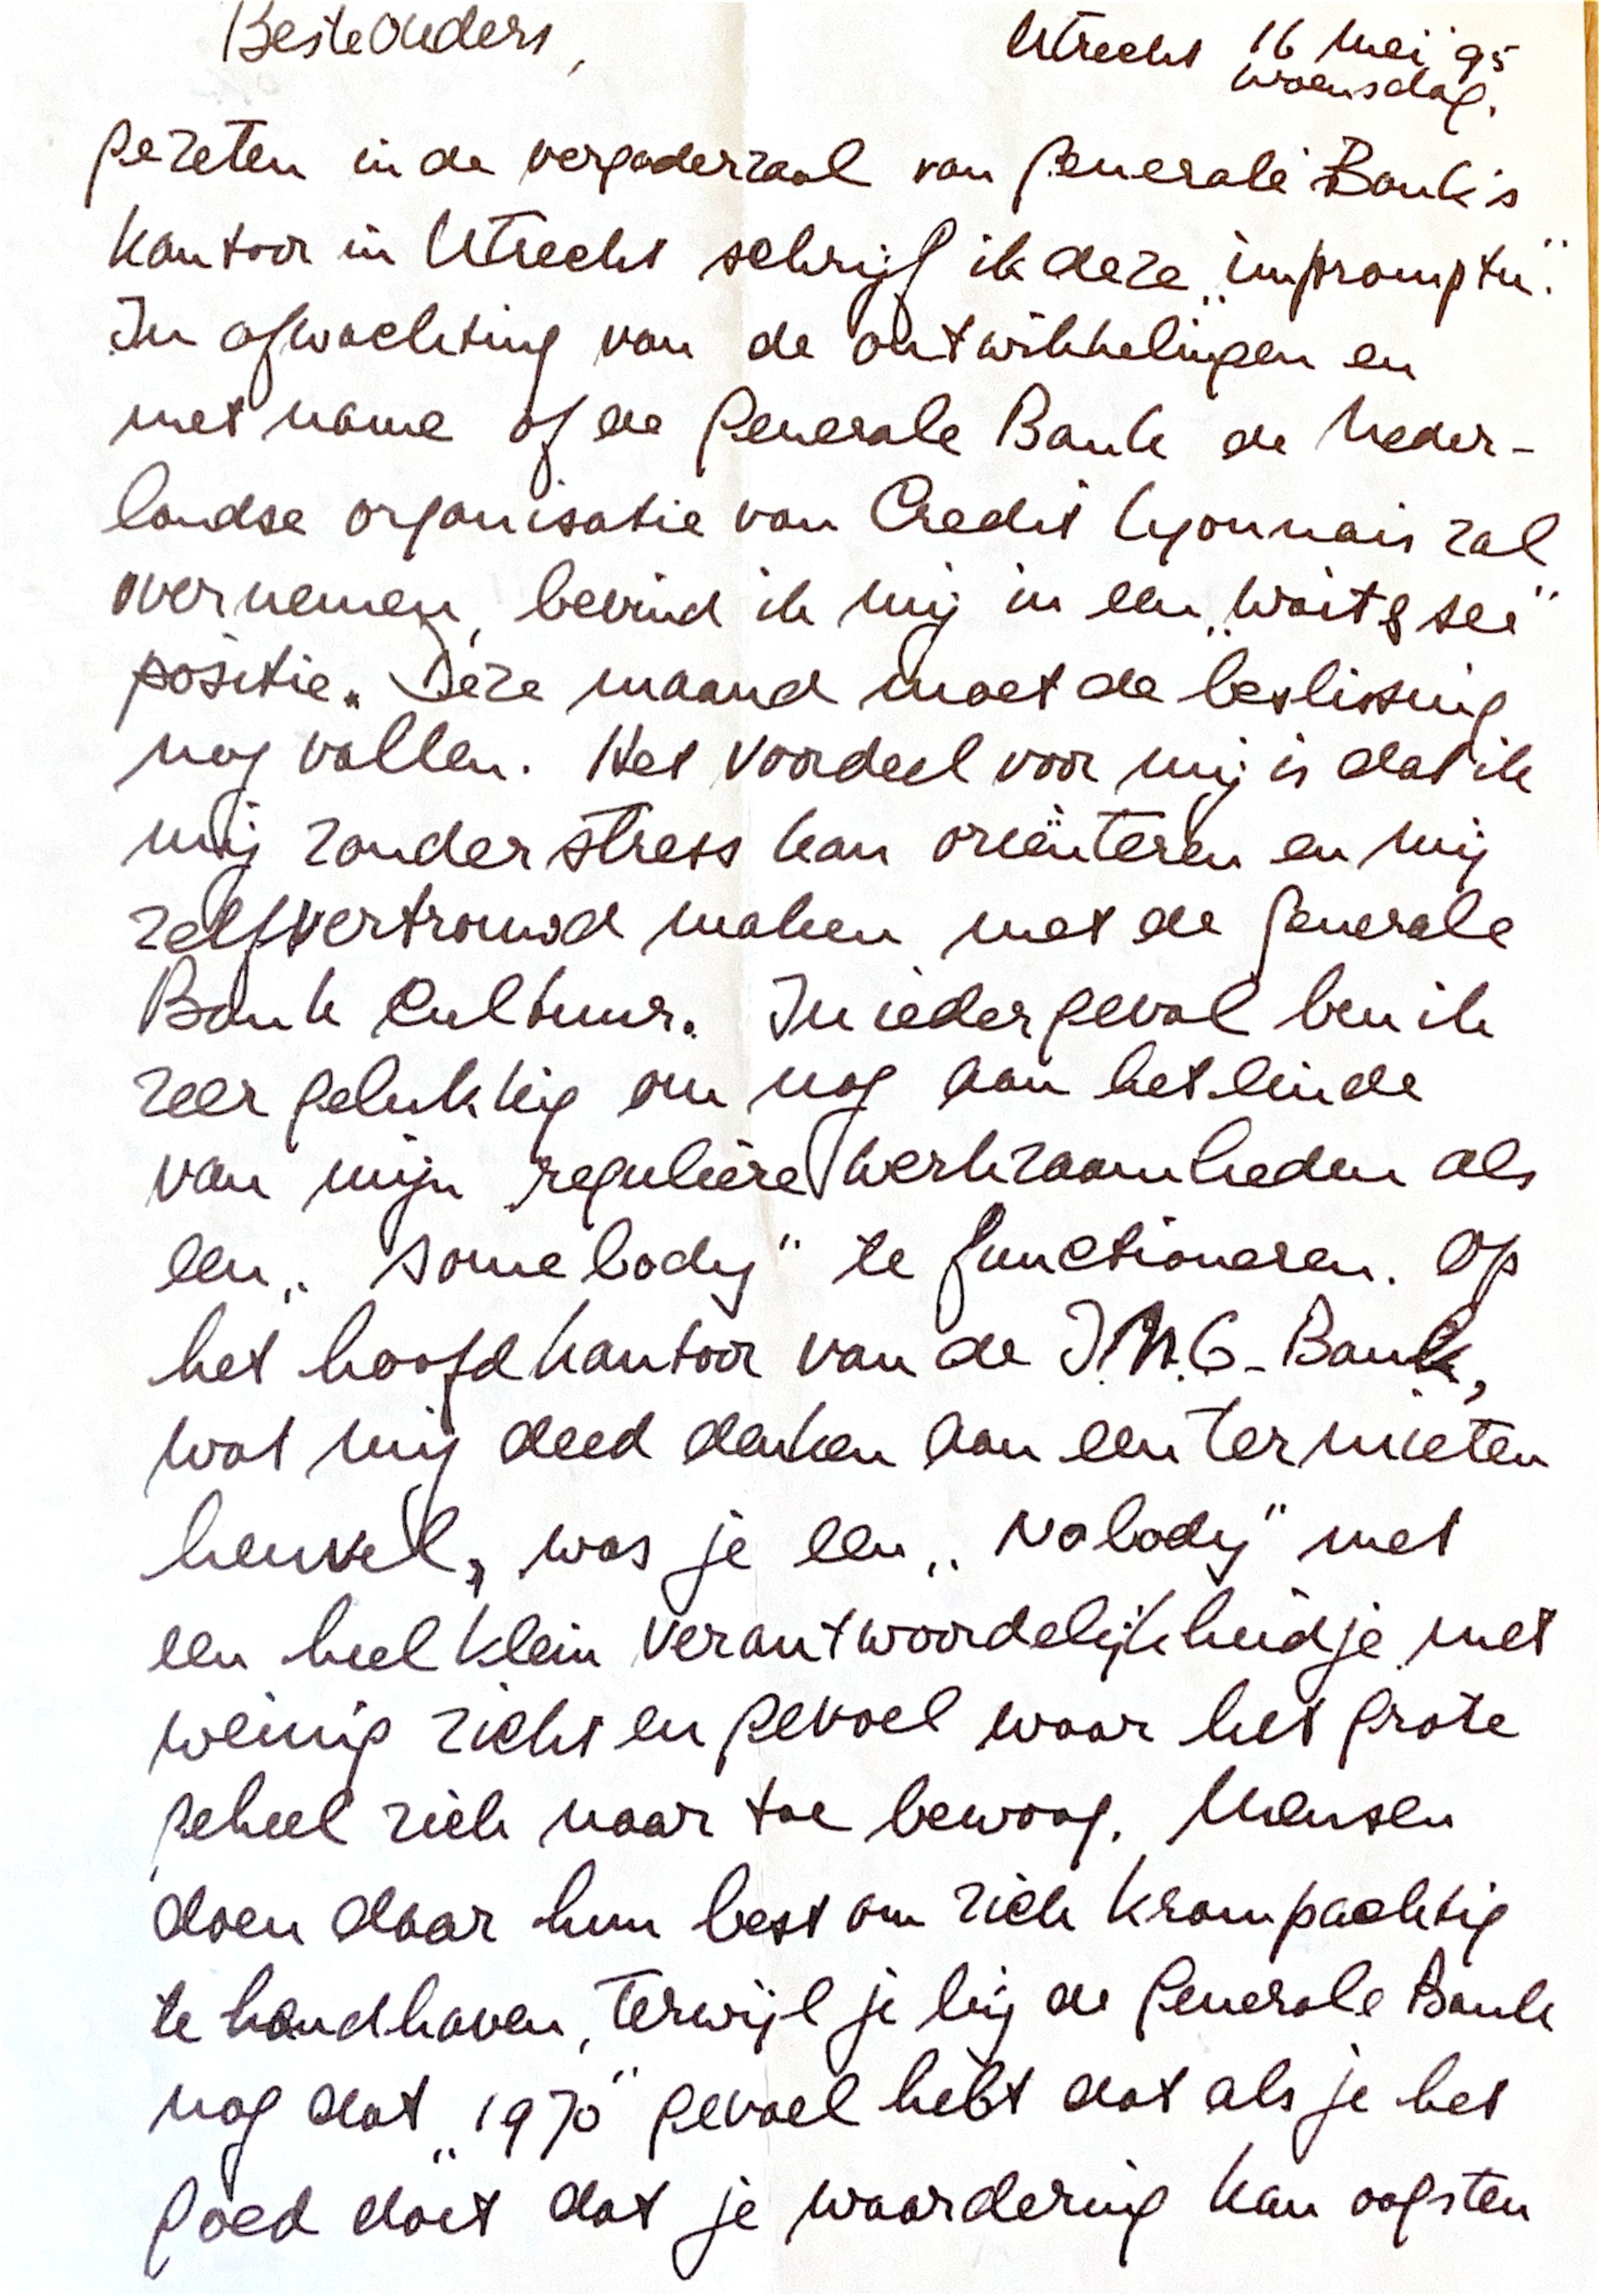 Beste Ouders,
Utrecht 16 Mei '95
woensdag.
gezeten in de vergaderzaal van Generale Bank's
kantoor in Utrecht schrijf ik deze „impromptu".
In afwachting van de ontwikkelingen en
met name of de Generale Bank de Neder-
landse organisatie van Credit Lyonnais zal
overnemen, bevind ik mij in een „wait & see"
positie. Deze maand moet de beslissing
nog vallen. Het voordeel voor mij is dat ik
mij zonder stress kan oriënteren en mij
zelf vertrouwd maken met de Generale
Bank Cultuur. In ieder geval ben ik
zeer gelukkig om nog aan het einde
van mijn reguliere werkzaamheden als
een „somebody" te functioneren. Op
het hoofdkantoor van de I.N.G-Bank,
wat mij deed denken aan een termieten
heuvel, was je een „nobody" met
een heel klein verantwoordelijkheidje met
weinig zicht en gevoel waar het grote
geheel zich naar toe bewoog. Mensen
doen daar hun best om zich krampachtig
te handhaven, terwijl je bij de Generale Bank
nog dat „1970" gevoel hebt dat als je het
goed doet dat je waardering kan oogsten